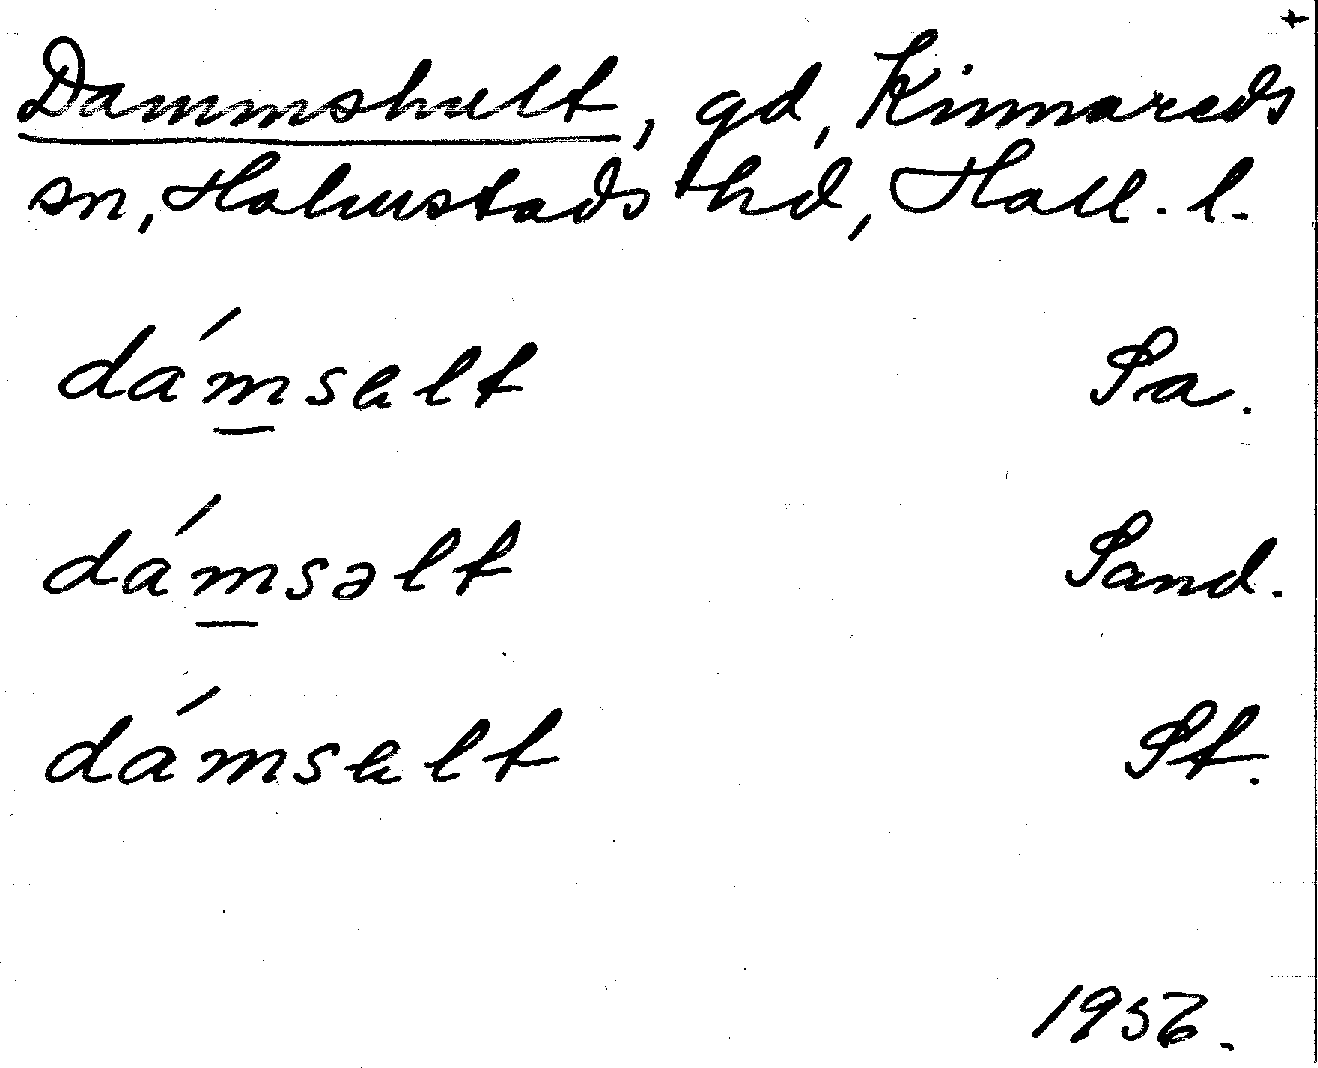 +
Dammshult, gd, Kinnareds
sn, Halmstads hd, Hall. l.
dámsalt Sa.
dámsəlt Sand.
dámsalt St.
1956.